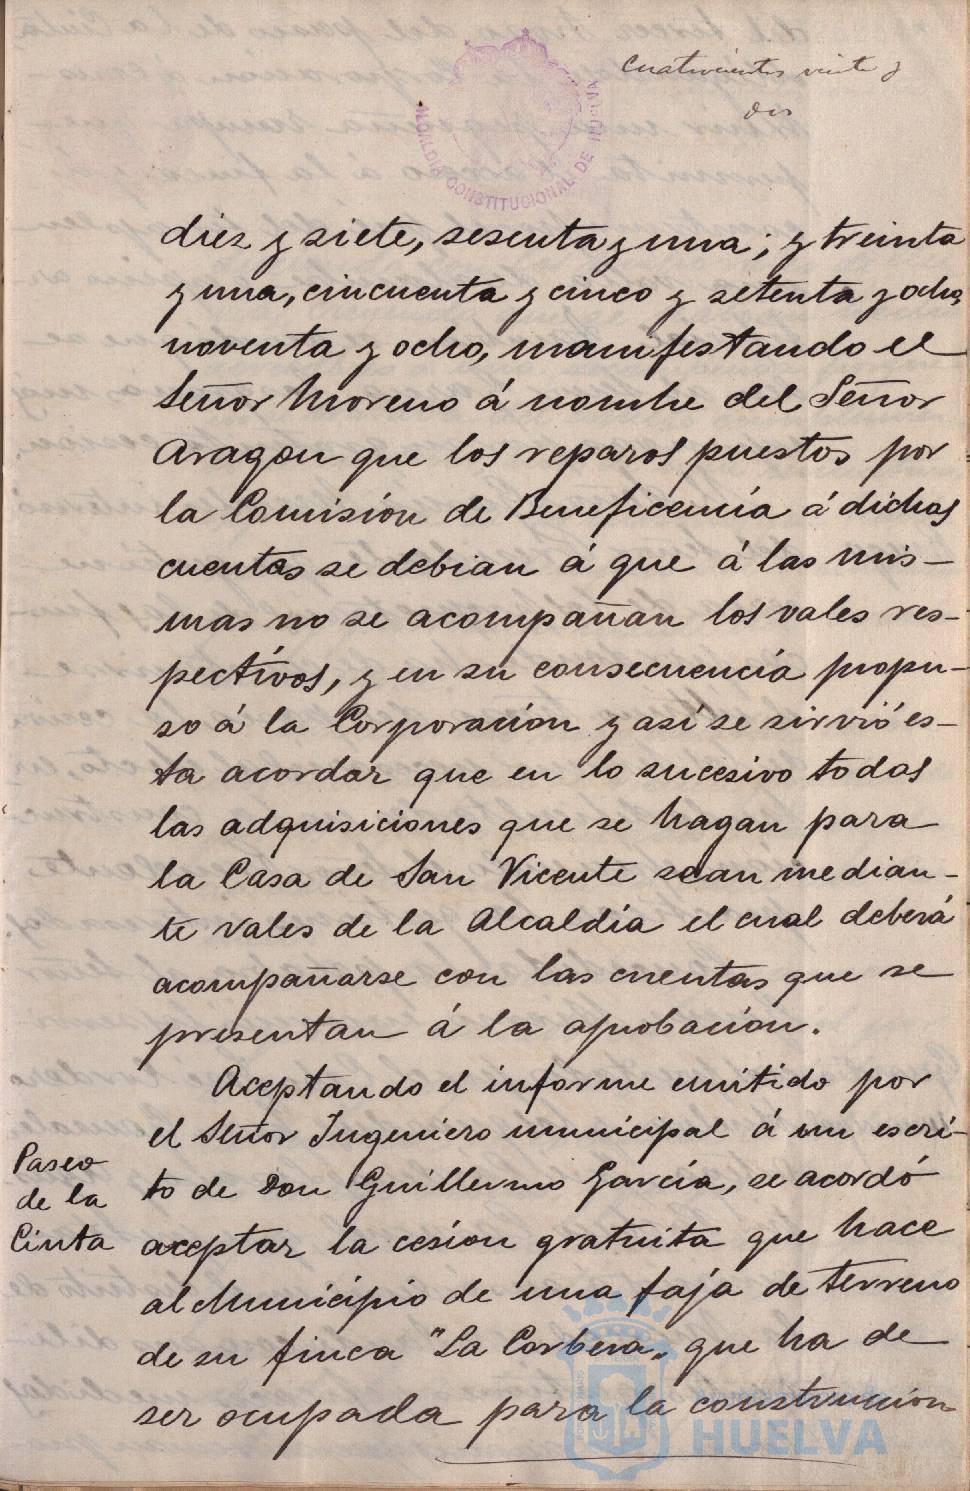 Cuatrocientos veinte y
dos
ALCALDIA CONSTITUCIONAL DE HUELVA
diez y siete, sesenta y una; y treinta
y una, cincuenta y cinco y setenta y ocho,
noventa y ocho, manifestando el
Señor Moreno á nombre del Señor
Aragon que los reparos puestos por
la Comisión de Beneficencia á dichas
cuentas se debian á que á las mis-
mas no se acompañan los vales res-
pectivos, y en su consecuencia propu-
so á la Corporación y así se sirvió es-
ta acordar que en lo sucesivo todas
las adquisiciones que se hagan para
la Casa de San Vicente sean median-
te vales de la Alcaldía el cual deberá
acompañarse con las cuentas que se
presentan á la aprobación.
Aceptando el informe emitido por
el Señor Ingeniero municipal á un escri-
to de Don Guillermo García, se acordó
aceptar la cesión gratuita que hace
al Municipio de una faja de terreno
de su finca "La Corbera" que ha de
ser ocupada para la construccion
Paseo
de la
Cinta
HUELVA